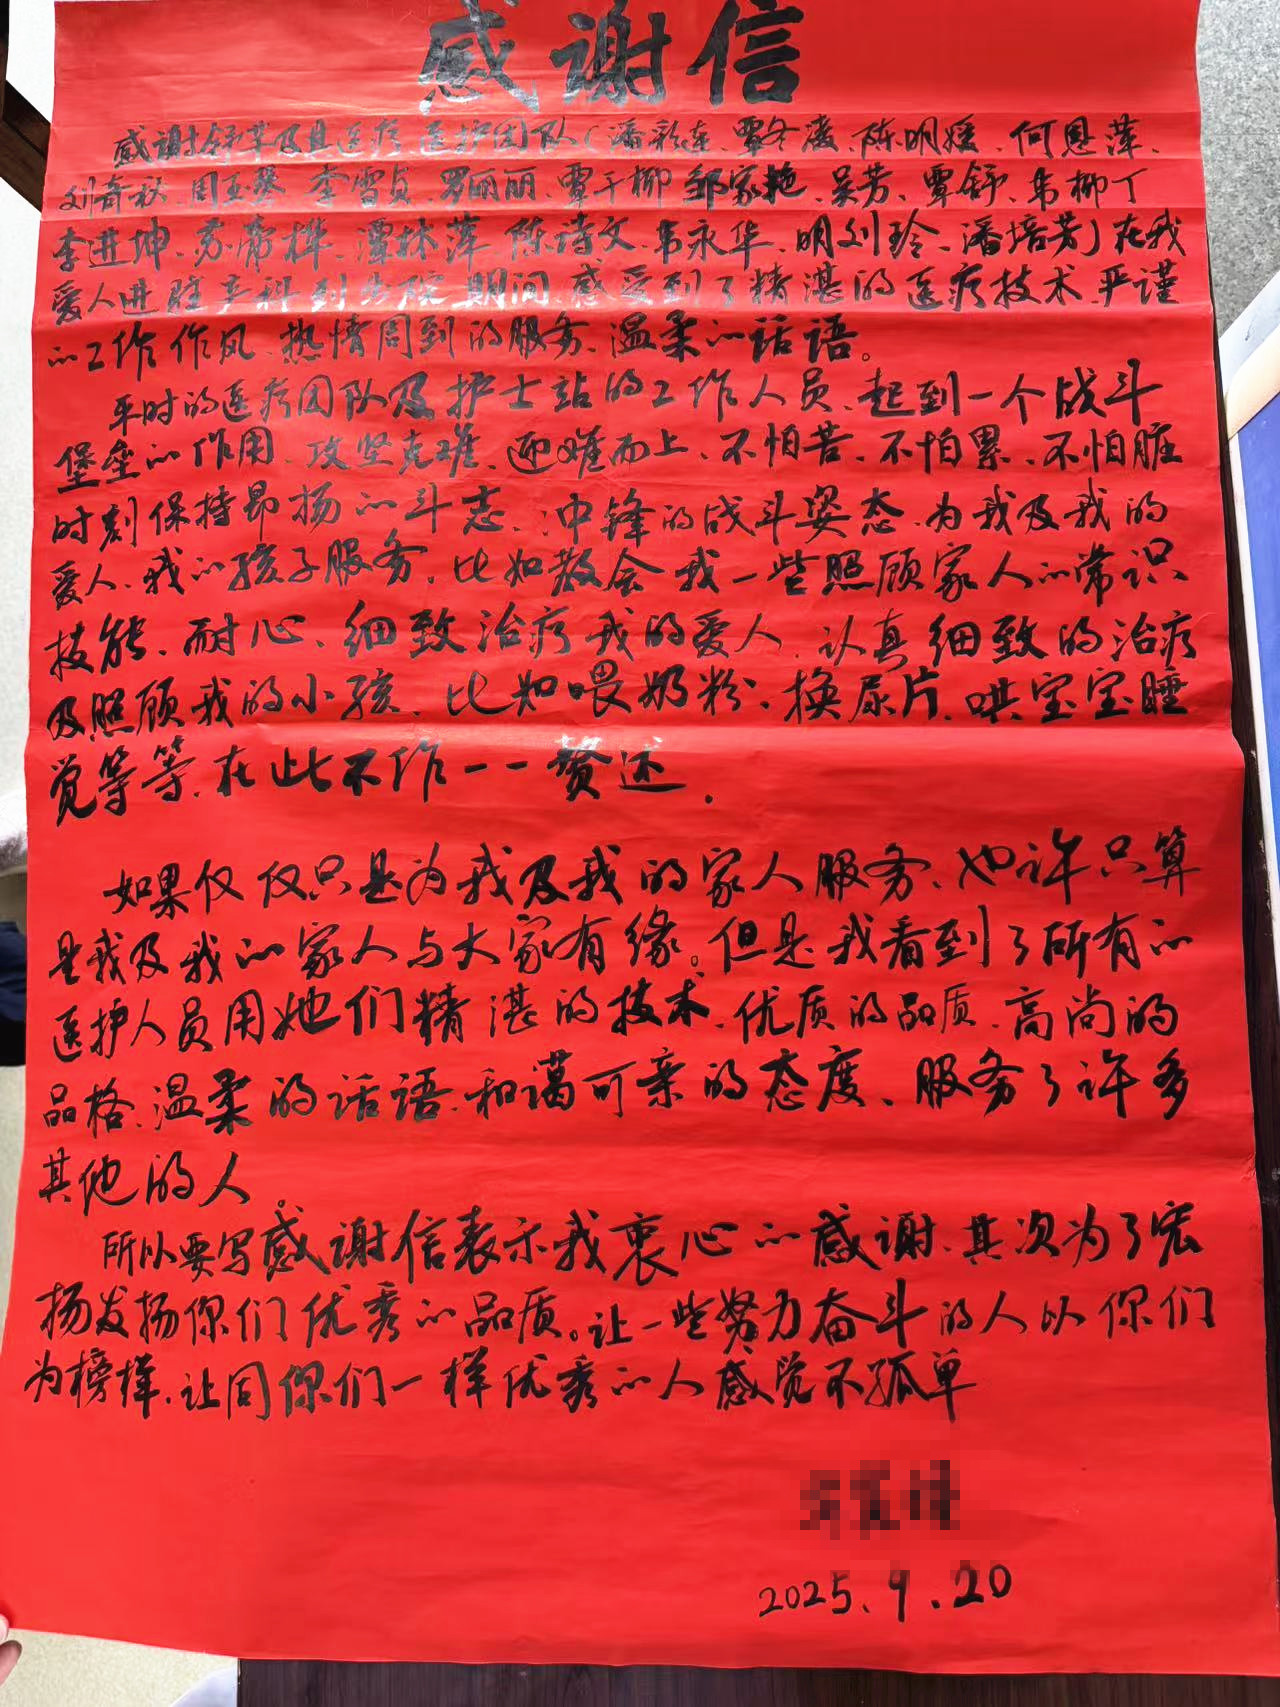 感谢信
感谢舒苹及且医疗医护团队(潘彩连、覃冬凌、陈明媛、何恩萍、
刘奇秋、周玉琴、李雪贞、罗丽丽、覃千柳、邹家艳、吴芳、覃舒、韦柳丁
李进坤、苏蒂桦、潭林萍、陈诗文、韦永华、明刘玲、潘培芳)在我
爱人进驻产科到出院期间,感受到了精湛的医疗技术、严谨
的工作作风、热情周到的服务、温柔的话语。
平时的医疗团队及护士站的工作人员、起到一个战斗
堡垒的作用、攻坚克难、迎难而上、不怕苦、不怕累、不怕脏
时刻保持昂扬的斗志、冲锋的战斗姿态、为我及我的
爱人、我的孩子服务,比如教会我一些照顾家人的常识
技能、耐心、细致治疗我的爱人、认真细致的治疗
及照顾我的小孩、比如喂奶粉、换尿片、哄宝宝睡
觉等等、在此不作一一赘述.
如果仅仅只是为我及我的家人服务、也许只算
是我及我的家人与大家有缘。但是我看到了所有的
医护人员用她们精湛的技术、优质的品质、高尚的
品格、温柔的话语、和蔼可亲的态度、服务了许多
其他的人。
所以要写感谢信表示我衷心的感谢、其次为了宏
扬发扬你们优秀的品质。让一些努力奋斗的人以你们
为榜样、让同你们一样优秀的人感觉不孤单
2025.9.20